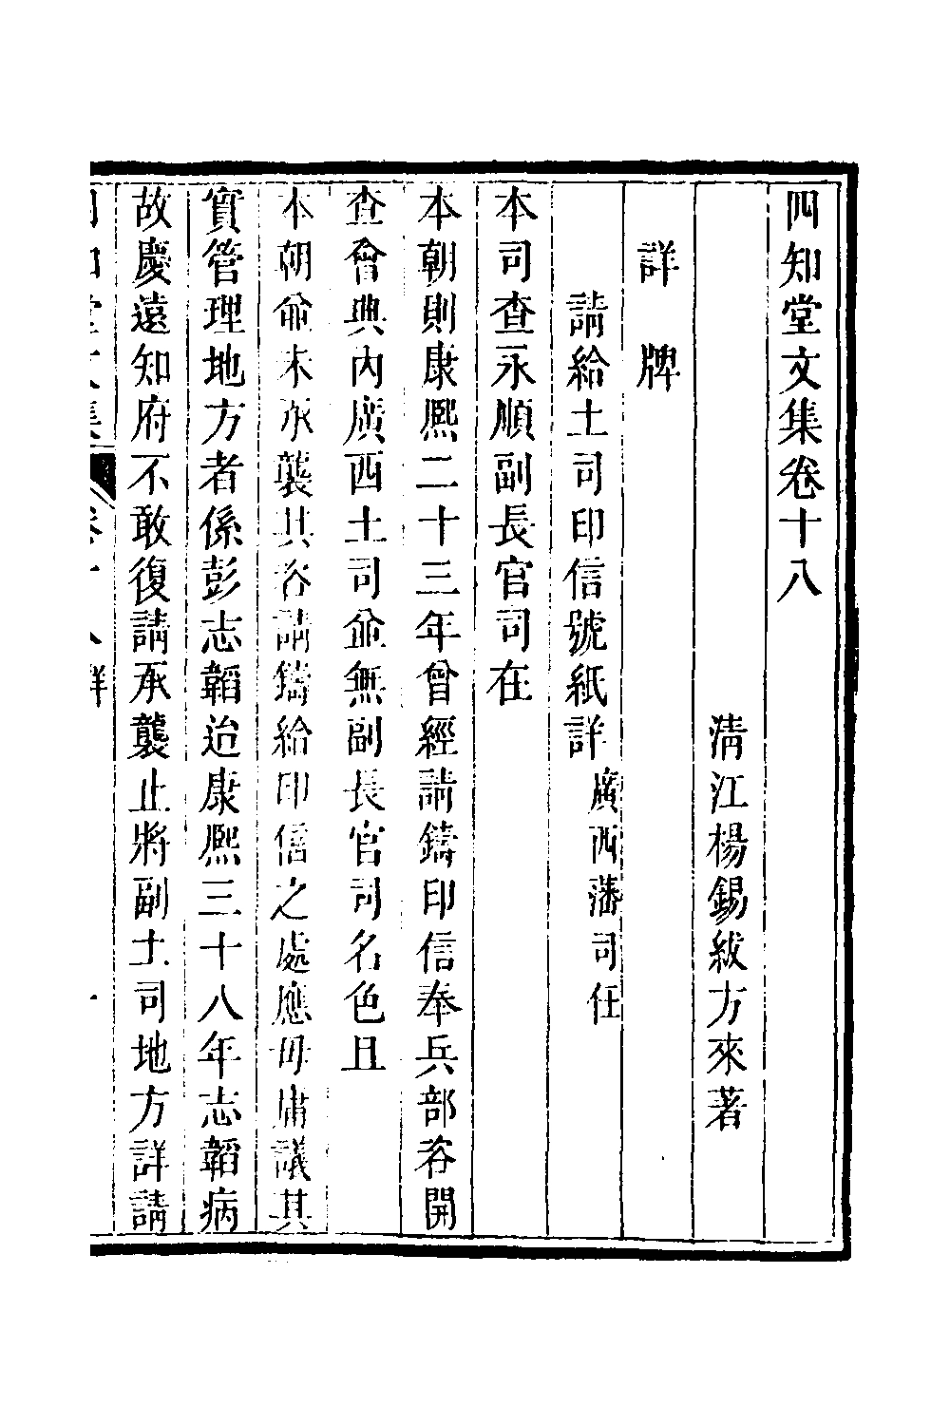 四知堂文集卷十八
清江楊錫紱方來著
詳　牌
請給土司印信號紙詳 廣西藩司任
本司查永順副長官司在
本朝則康熙二十三年曾經請鑄印信奉兵部咨開
查會典內廣西土司並無副長官司名色且
本朝並未承襲其咨請鑄給印信之處應毋庸議其
實管理地方者係彭志韜迨康熙三十八年志韜病
故慶遠知府不敢復請承襲止將副土司地方詳請